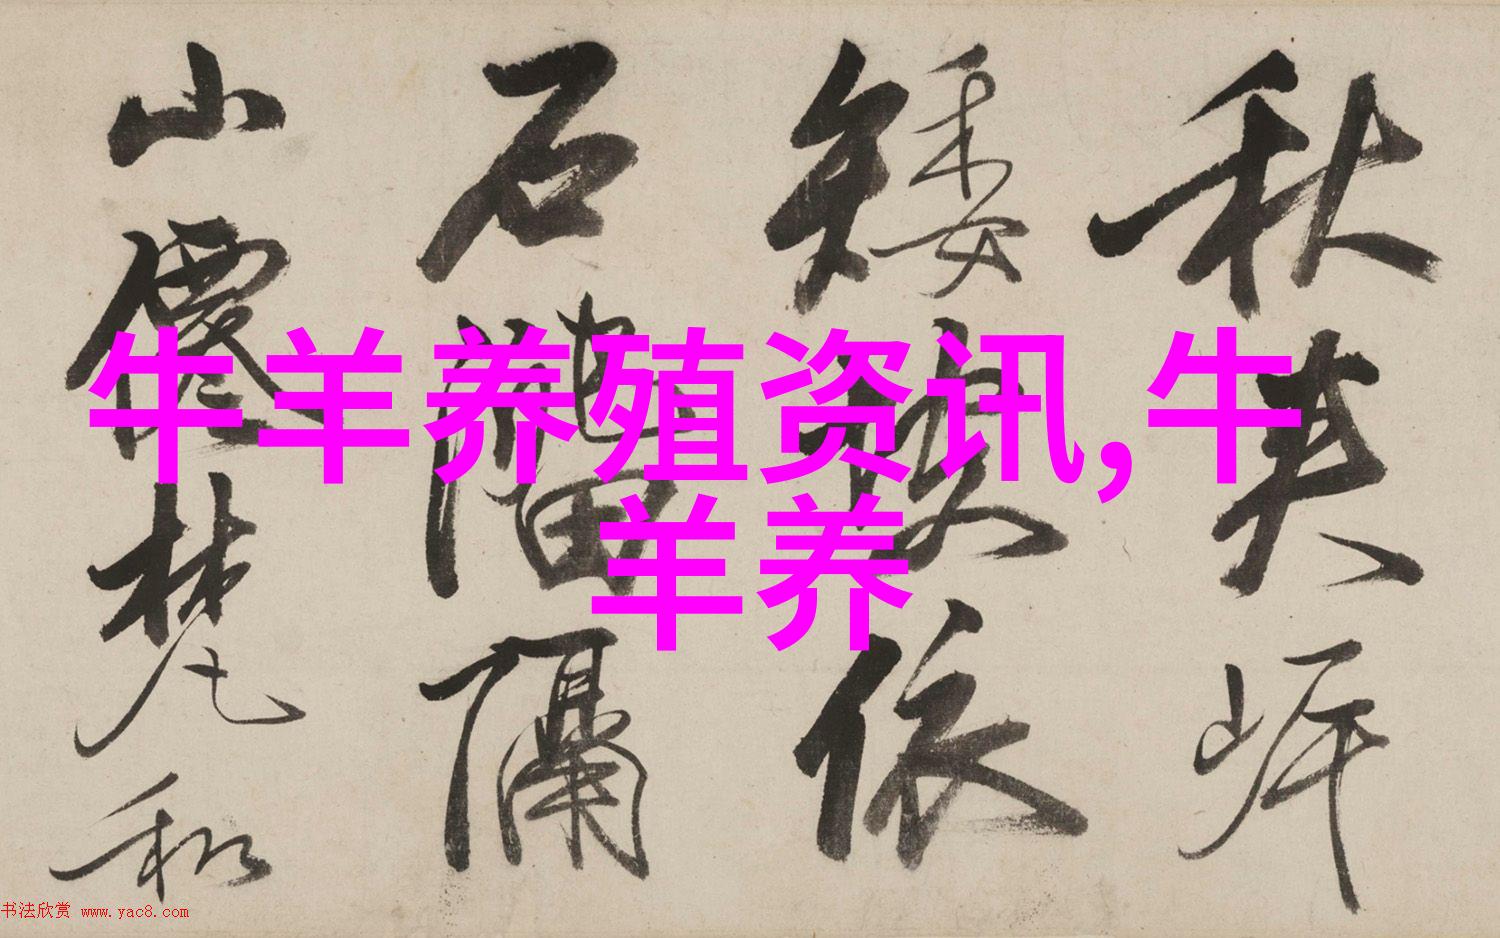 牛羊养殖资讯,牛
羊养
秋英
矮依
石隔
山僊梵和
书法欣赏 www.yac8.com